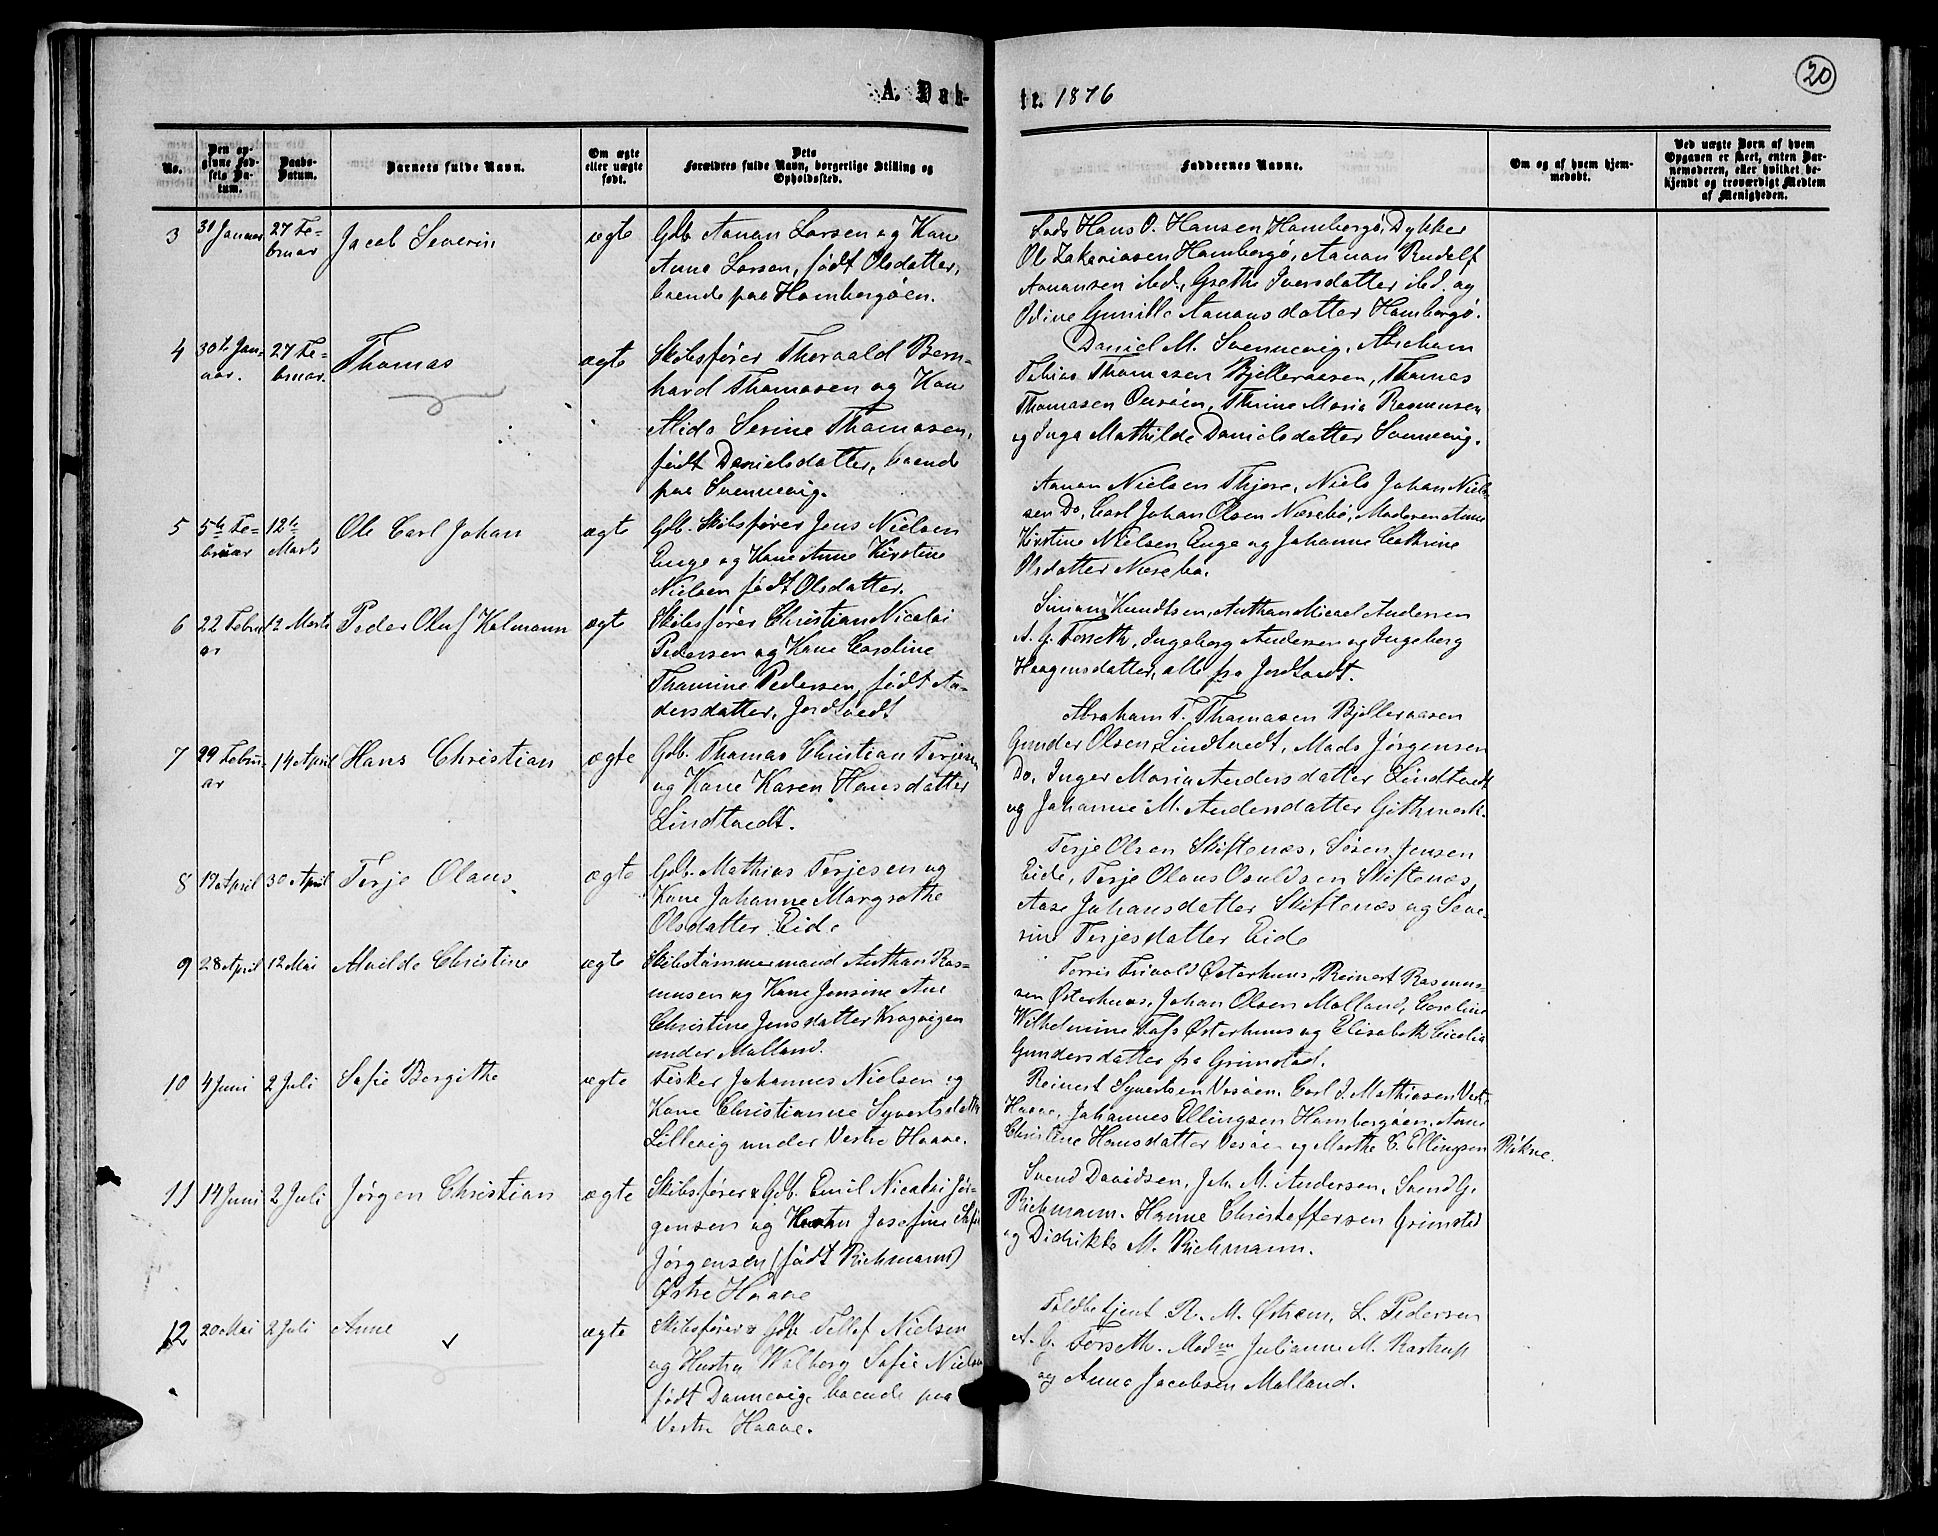 20
A. Døb-
te. 1876
No.
Den op-
givne Fød-
sels Da-
tum.
Daabs-
Datum.
Barnets fulde Navn.
Om ægte
eller uægte
født.
Dets
Forældres fulde Navn, borgerlige Stilling og
Opholdssted.
Faddernes Navne.
Om og af hvem hjem-
medøbt.
Ved uægte Børn af hvem
Opgaven er skeet, enten Bar-
nemoderen, eller hvilket be-
kjendt og troværdigt Medlem
af Menigheden.
3
31 Januar
27 Fe-
bruar
Jacob Severin
ægte
Gdb Aanon Larsen og Kone
Anne Larsen, født Olsdatter,
boende paa Hamborgøen.
Lods Hans O. Hansen Hamborgø, Dykker
Ole Zakariasen Hamborgø, Aanon Rudolf
Aanonsen ibd., Grethe Iversdatter ibd. og
Odine Gunille Aanonsdatter Hamborgø.
4
30te Jan-
uar.
27 Fe-
bruar.
Thomas
ægte
Skibsfører Thorvald Bern-
hard Thomasen og Kone
Alida Serine Thomasen,
født Danielsdatter, boende
paa Svennevig.
Daniel M. Svennevig, Abraham
Tobias Thomasen Bjelleraasen, Thomas
Thomasen, Thrine Maria Rasmusen
og Inga Mathilde Danielsdatter Svennevig.
5
5te Fe-
bruar
12te
Marts
Ole Carl Johan
ægte
Gdb. Skibsfører Jens Nielsen
Enge og Kone Anne Kirstine
Nielsen født Olsdatter.
Aanon Nielsen Thjøre, Niels Johan Niel-
sen Do, Carl Johan Olsen Næsebø, Madsen Anne
Kirstine Nielsen Enge og Johanne Cathrine
Olsdatter Næsebø.
6
22 Febru-
ar
12 Marts
Peder Oluf Kalmann
ægte
Skibsfører Christian Nicolai
Pedersen og Kone Caroline
Thomine Pedersen, født An-
dersdatter, Jordtvedt
Simon Knudtsen, Anthon Micael Andersen
A. G. Forseth, Ingeborg Andersen og Ingeborg
Haagensdatter, alle fra Jordtvedt.
7
29 Febru-
ar
14 April
Hans Christian
ægte
Gdb. Thomas Christian Terjesen
og Kone Karen Hansdatter
Lindtvedt.
Abraham T. Thomasen Bjelleraasen
Gunder Olsen Lindtvedt, Mads Jørgensen
Do, Inger Maria Andersdatter Lindtvedt
og Johanne M. Andersdatter Githmark.
8
19 April
30 April
Terje Olaus
ægte
Gdb. Mathias Terjesen og
Kone Johanne Margrethe
Olsdatter Eide
Terje Olsen Skiftenæs, Søren Jensen
Eide, Terje Olaus Osuldsen Skiftenæs,
Aase Johansdatter Skiftenæs og Seve-
rine Terjesdatter Eide
9
28 April
12 Mai
Alvilde Christine
ægte
Skibstømmermand Anthon Ras-
musen og Kone Jensine Ane
Christine Jensdatter Kragvigen
under Malland.
Torris Trivold Østerhuus, Reinert Rasmus-
sen Østerhuus, Johan Olsen Malland, Caroline
Wilhelmine Østerhuus og Elisabeth Cicelia
Gundersdatter fra Grimstad.
10
4 Juni
2 Juli
Sofie Bergithe
ægte
Fisker Johannes Nielsen og
Kone Christianne Syvertsdatter
Lillevig under Vestre Haave.
Reinert Syvertsen Vesøen, Carl J. Mathiasen Vest.
Haave, Johannes Ellingsen Hamborgøen, Anne
Christine Hansdatter Vesøen og Marthe C. Ellingsen Røkne.
11
14 Juni
2 Juli
Jørgen Christian
ægte
Skibsfører & Gdb. Emil Nicolai Jør-
gensen og Hustru Josefine Sofie
Jørgensen (født Richmann)
Østre Haave
Svend Davidsen, Joh. M. Andersen, Svend G.
Richmann. Hanne Christoffersen Grimstad
og Didrikke M. Richmann.
12
20 Mai
2 Juli
Anne
ægte
Skibsfører & Gdb Tellef Nielsen
og Hustru Walborg Sofie Nielsen
født Dannevig, boende paa
Vestre Haave.
Toldbetjent R. M. Østrem, L. Pedersen
A. G. Forseth. Madm Julianne M. Rostrup
og Anna Jacobsen Malland.